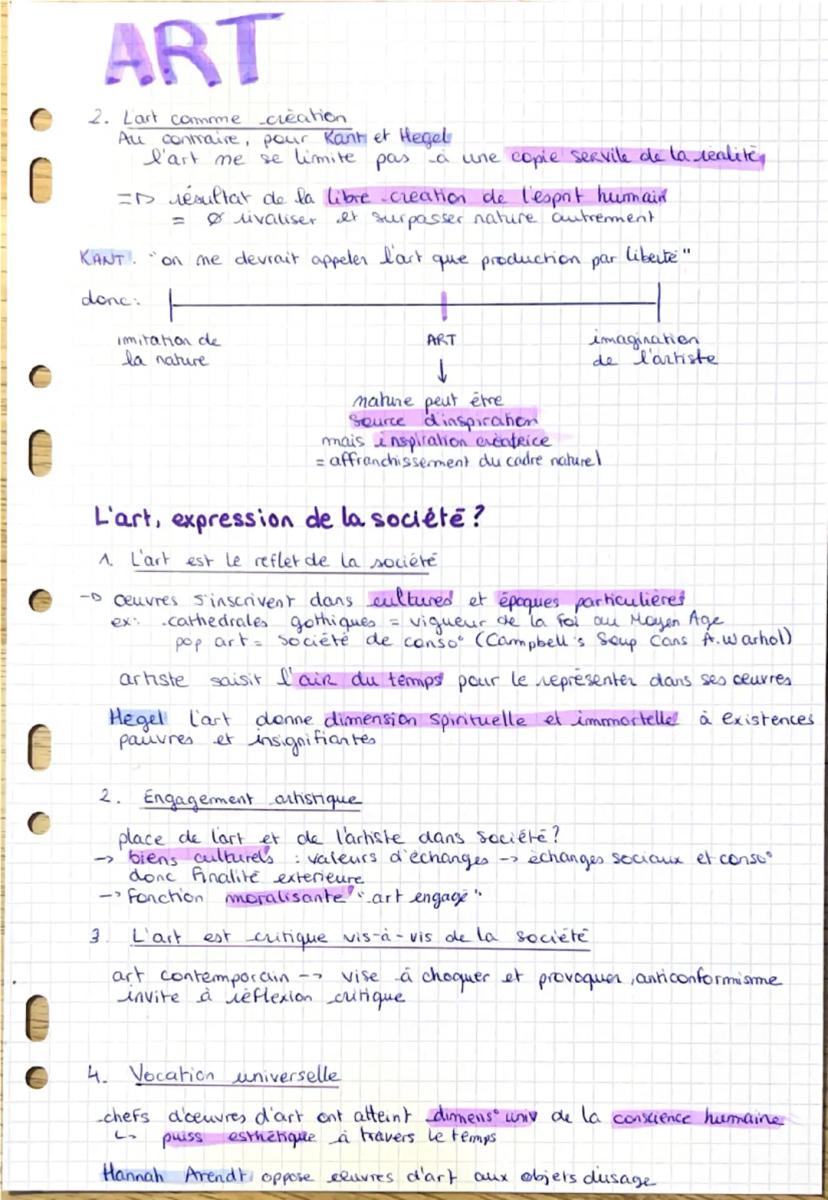 ART
2. L'art comme création
Au contraire, pour Kant et Hegel
l'art ne se limite pas à une copie servile de la réalité,
=> résultat de la libre creation de l'esprit humain
= Ø rivaliser et surpasser nature autrement
KANT : "on ne devrait appeler l'art que production par liberté"
donc:
imitation de la nature
ART
imagination de l'artiste
↓
nature peut être
source d'inspiration
mais inspiration créatrice
= affranchissement du cadre naturel
L'art, expression de la société ?
1. L'art est le reflet de la société
-> œuvres s'inscrivent dans cultures et époques particulières
ex: cathédrales gothiques = vigueur de la foi au Moyen Age
pop art = société de conso° (Campbell's Soup Cans A.Warhol)
artiste saisit l'air du temps pour le représenter dans ses œuvres
Hegel l'art donne dimension spirituelle et immortelle à existences
pauvres et insignifiantes
2. Engagement artistique
place de l'art et de l'artiste dans société?
-> biens culturels : valeurs d'échanges -> échanges sociaux et conso°
donc finalité extérieure
-> fonction moralisante "art engagé"
3. L'art est critique vis-à-vis de la société
art contemporain --> vise à choquer et provoquer, anticonformisme
invite à réflexion critique
4. Vocation universelle
chefs d'œuvres d'art ont atteint dimens° univ de la conscience humaine
↳ puiss esthétique à travers le temps
Hannah Arendt oppose œuvres d'art aux objets d'usage